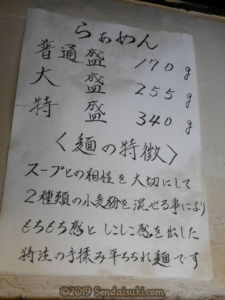 らぁめん
普通盛 170g
大盛 255g
特盛 340g
〈麺の特徴〉
スープとの相性を大切にして
2種類の小麦粉を混ぜる事により
もちもち感としこしこ感を出した
特注の手揉み平ちぢれ麺です
©2019 Sendaisuki.com